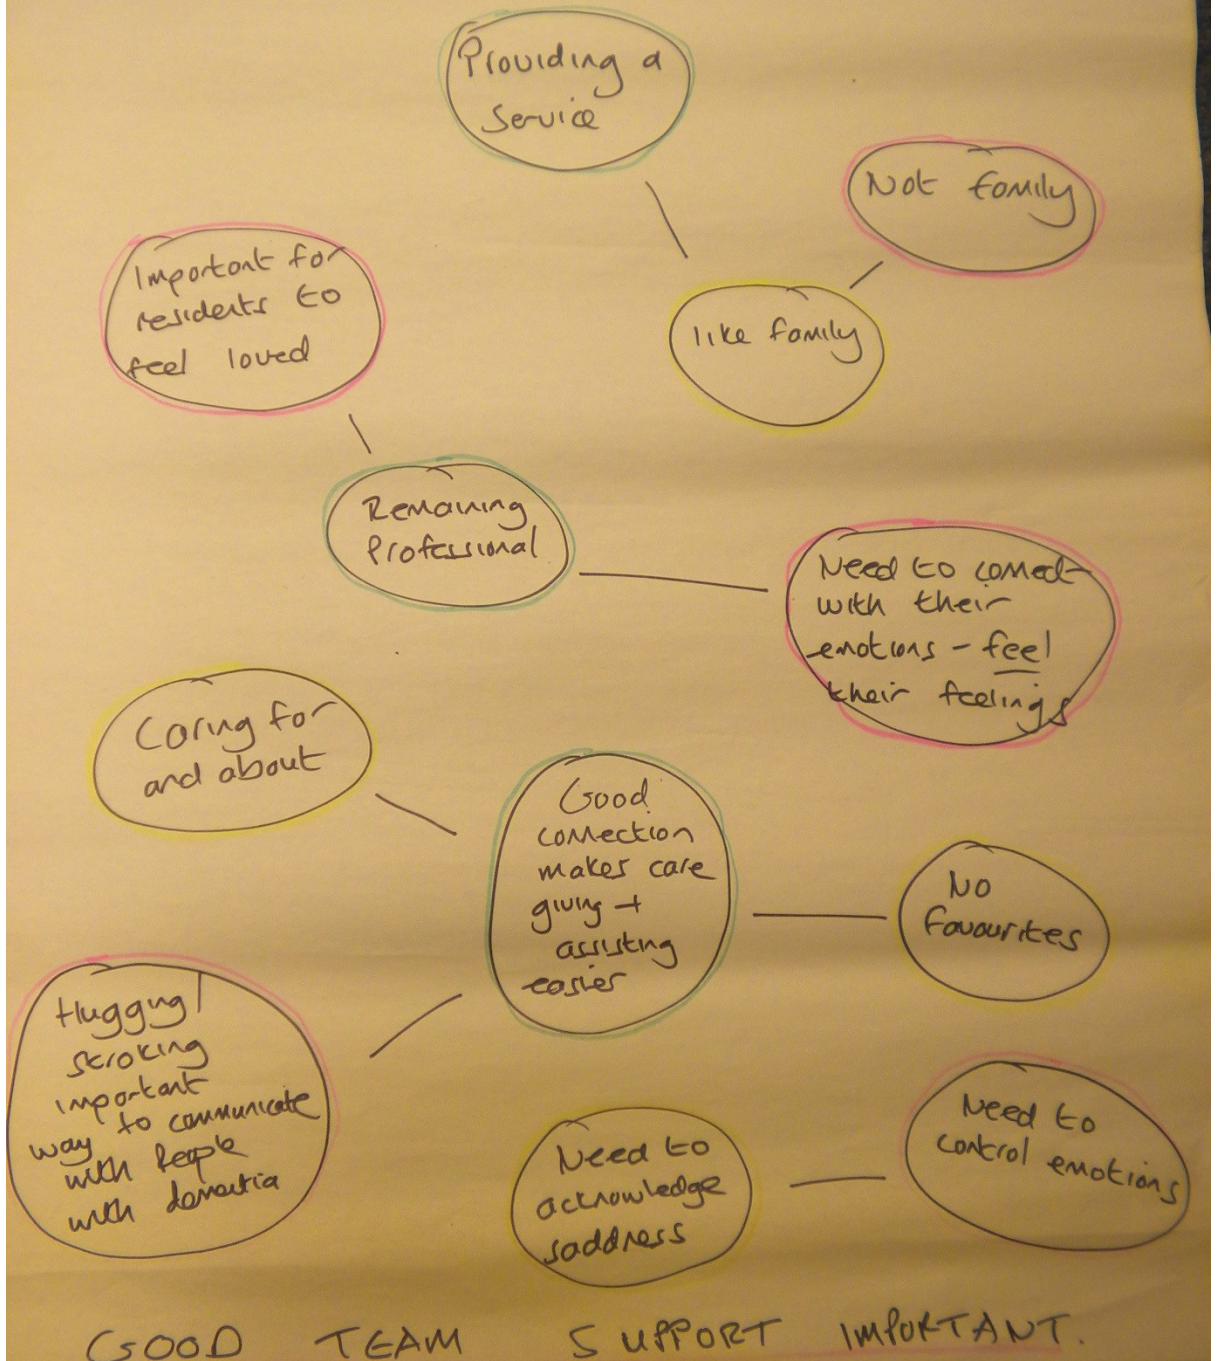 Providing a
Service
Not family
like family
Important for
residents to
feel loved
Remaining
Professional
Need to connect
with their
emotions - feel
their feelings
Caring for
and about
Good
connection
makes care
giving +
assisting
easier
No
favourites
Hugging/
stroking
important
way to communicate
with People
with dementia
Need to
acknowledge
saddness
Need to
control emotions
GOOD TEAM SUPPORT IMPORTANT.